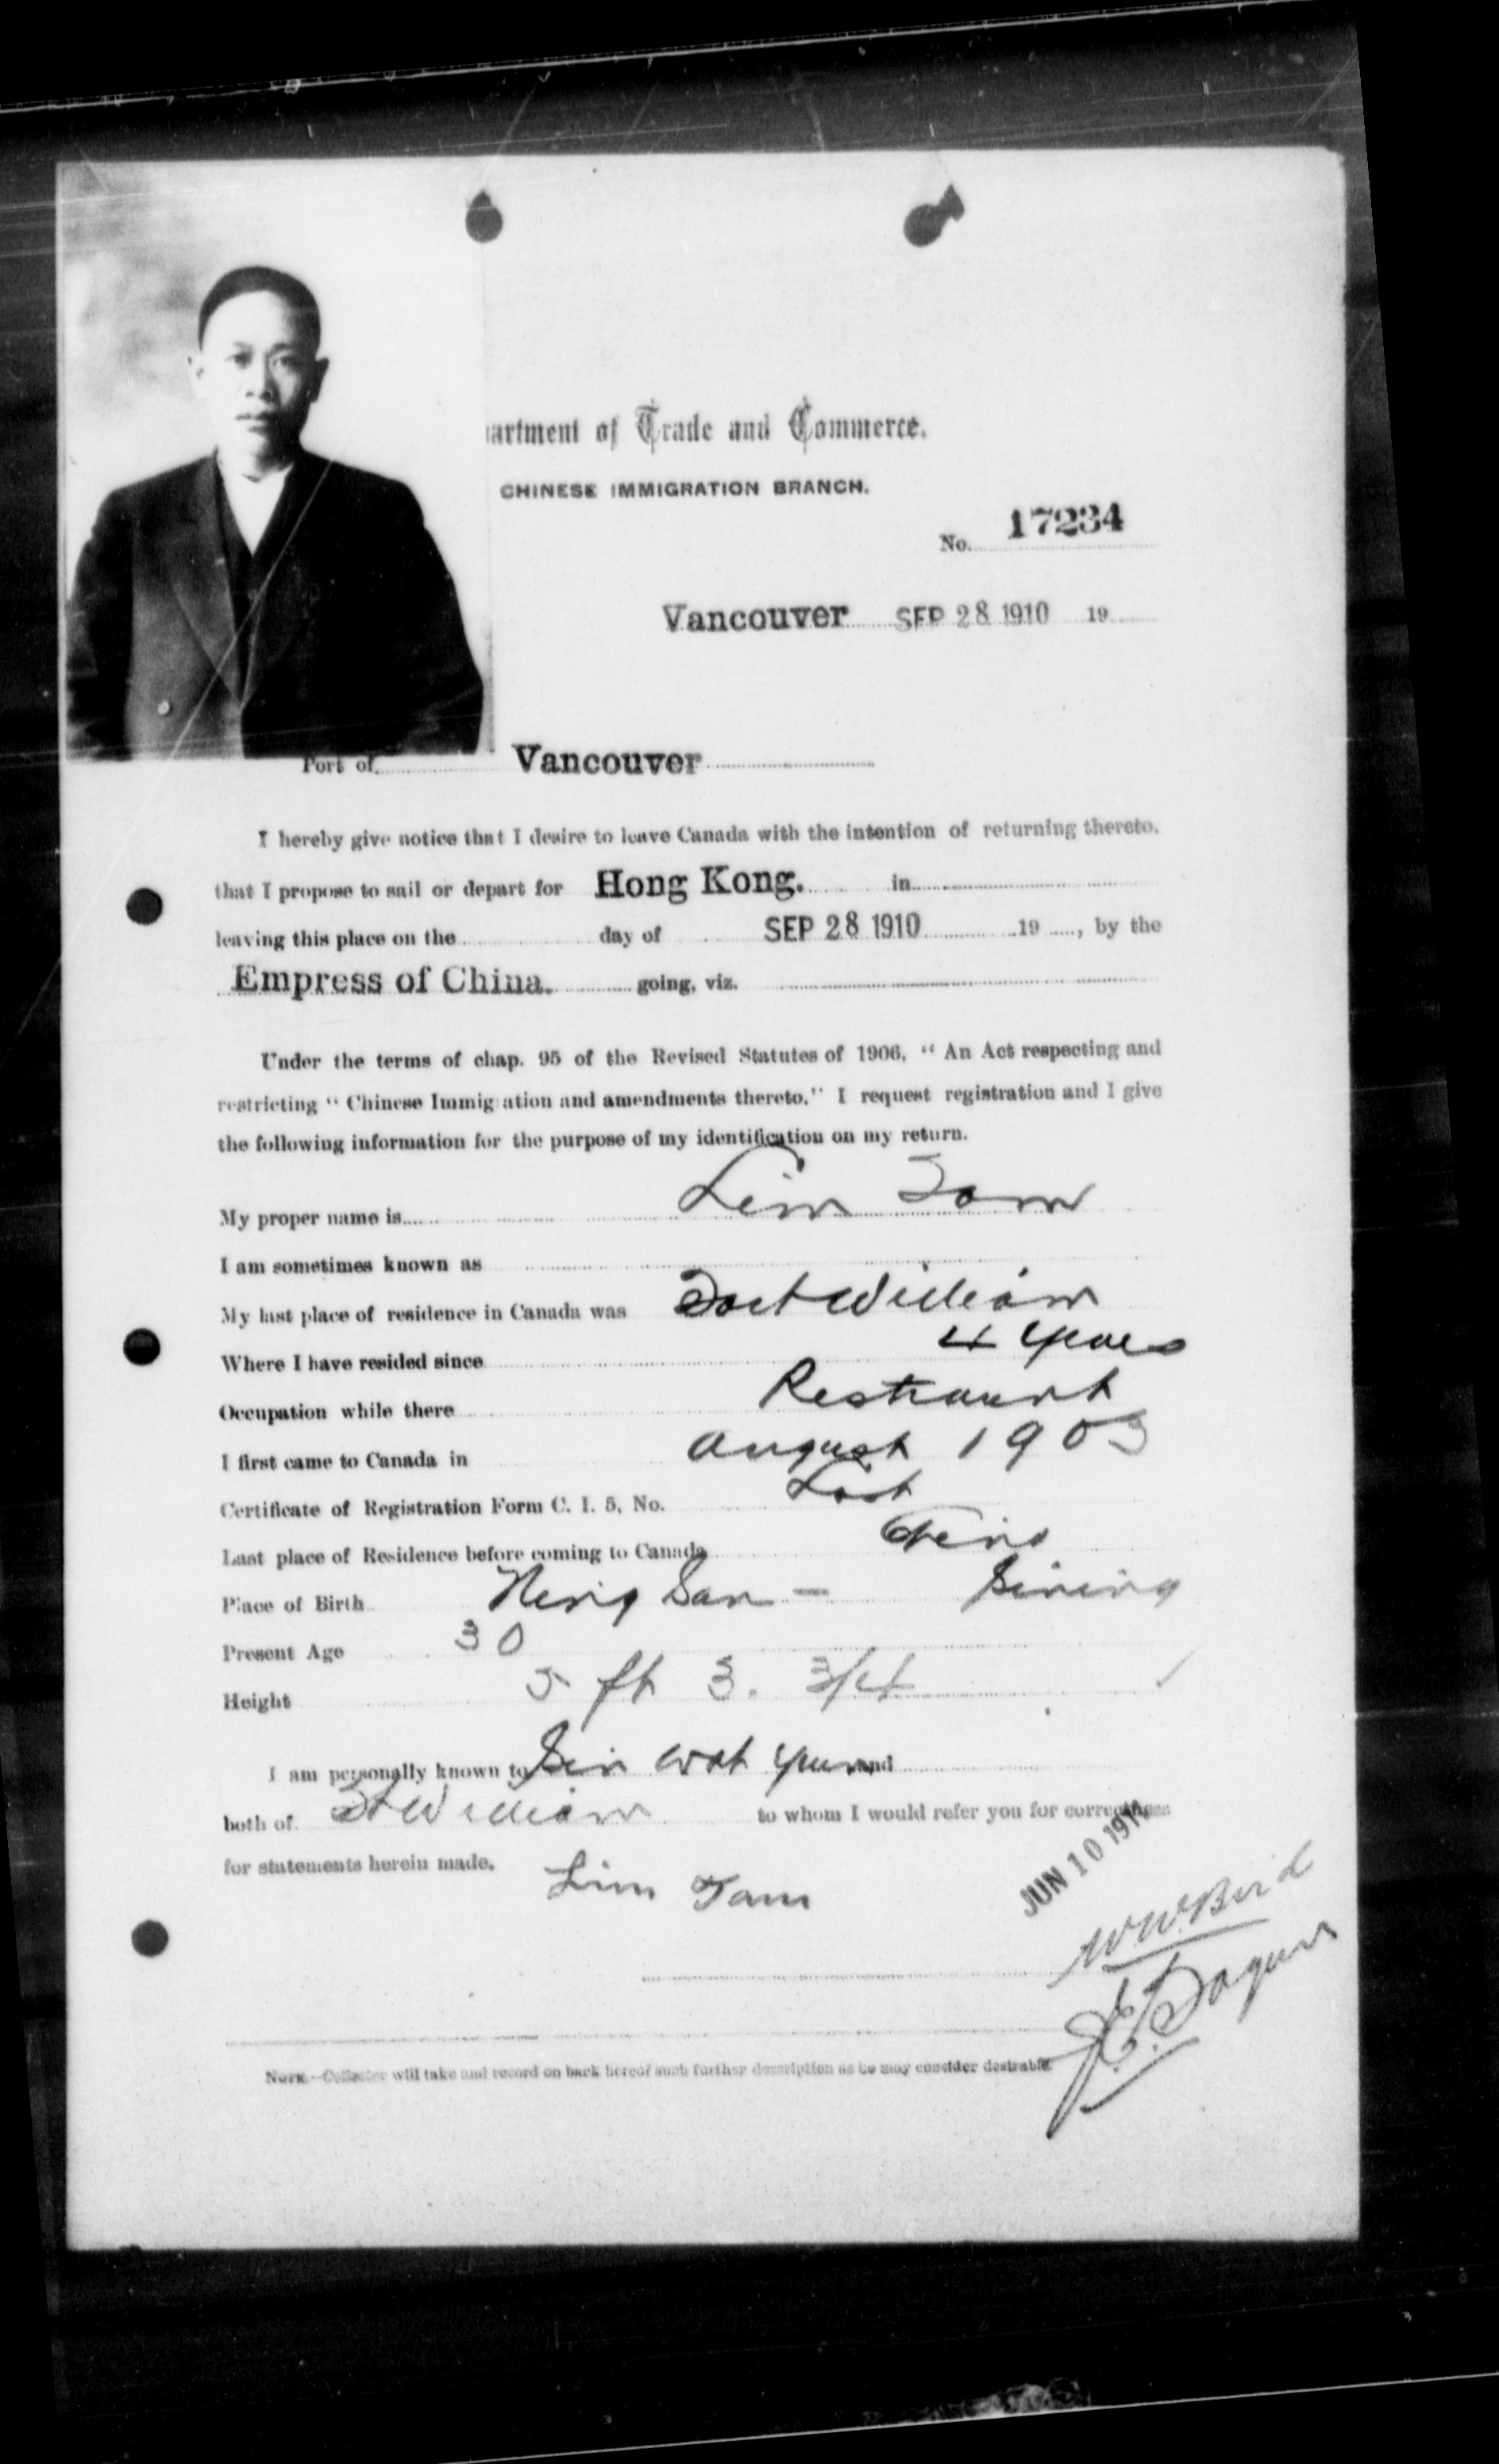 artment of Trade and Commerce.
CHINESE IMMIGRATION BRANCH.
No. 17234
Vancouver SEP 28 1910 19
Port of Vancouver
I hereby give notice that I desire to leave Canada with the intention of returning thereto.
that I propose to sail or depart for Hong Kong. in
leaving this place on the day of SEP 28 1910 19 , by the
Empress of China. going, viz.
Under the terms of chap. 95 of the Revised Statutes of 1906, “ An Act respecting and
restricting “ Chinese Immig ation and amendments thereto.” I request registration and I give
the following information for the purpose of my identification on my return.
My proper name is Lim Tom
I am sometimes known as
My last place of residence in Canada was Fort William
Where I have resided since 4 years
Occupation while there Restraunt
I first came to Canada in August 1903
Certificate of Registration Form C. I. 5, No. Lost
Last place of Residence before coming to Canada
Place of Birth Ning San – Sining
Present Age 30
Height 5 ft 3. 3/4
I am personally known to Wot and
both of Ft William to whom I would refer you for correctness
for statements herein made.
Lim Tam
JUN 10 191
W W. Bird
J. E.
NOTE.—Collector will take and record on back hereof such further description as he may consider desirable.